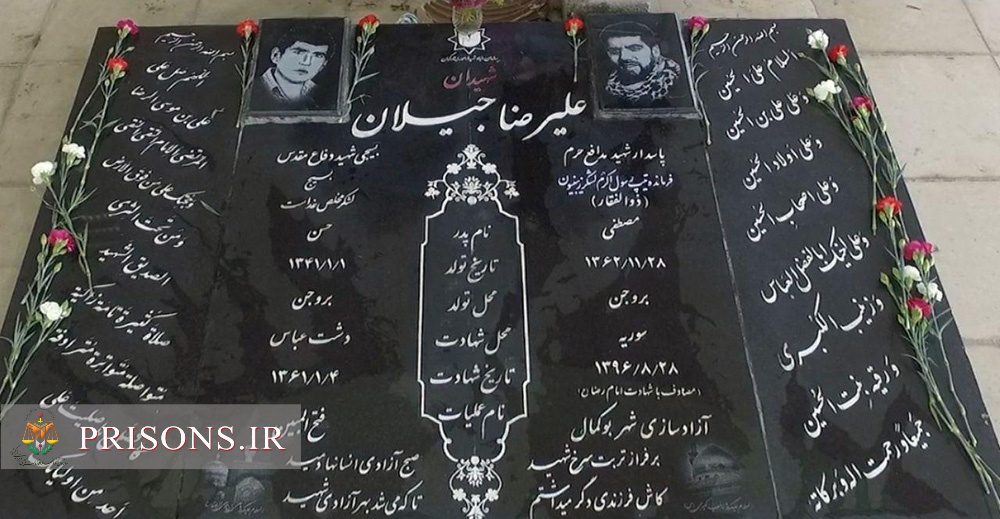 بسم الله الرحمن الرحیم
السلام علی الحسین
وعلی علی بن الحسین
وعلی اولاد الحسین
وعلی اصحاب الحسین
وعلی اخیک اباالفضل العباس
وزینب الکبری
ورقیه بنت الحسین
جمیعا ورحمت اله و برکاته
شهیدان
علیرضا جیلان
پاسدار شهید مدافع حرم
فرمانده تیپ رسول اکرم لشکر زینبیون
(ذوالفقار)
بسیجی شهید دفاع مقدس
بسیج
لشکر مخلص خداست
مصطفی
نام پدر
حسن
۱۳۶۲/۱۱/۲۸
تاریخ تولد
۱۳۴۱/۱/۱
بروجن
محل تولد
بروجن
سوریه
محل شهادت
دشت عباس
۱۳۹۶/۸/۲۸
تاریخ شهادت
۱۳۶۱/۱/۴
(مصادف با شهادت امام رضا(ع)
نام عملیات
آزادسازی شهر بوکمال
فتح المبین
بر فراز تربت سرخ شهید
صبح آزادی انسانها دمید
کاش فرزندی دگر میداشتم
تا که می شد بهر آزادی شهید
بسم الله الرحمن الرحیم
اللهم صل علی
علی بن موسی الرضا
المرتضی الامام التقی النقی
وحجتک علی من فوق الارض
ومن تحت الثری
الصدیق الشهید
صلاة کثیرة تامة زاکیة
متواصلة متواترة مترادفة
صلیت علی
احد من اولیائک
PRISONS.IR